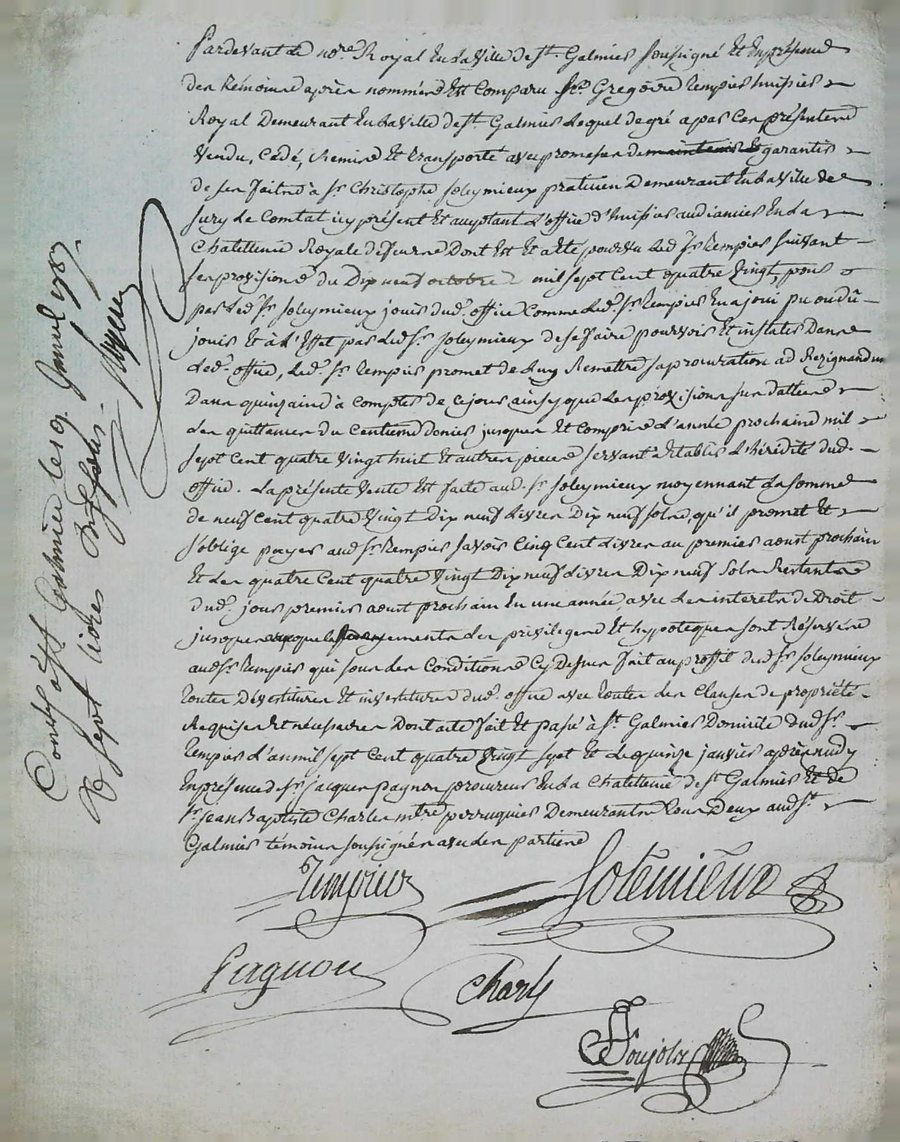 Pardevant Le no.re Royal En la Ville de St. Galmier soussigné Et En présence
des témoins après nommés Est Comparu Sr. Grégoire tempier huissier
Royal Demeurant En la Ville de St. Galmier Lequel de gré a par Ces présentes
Vendu, Cédé, Remis Et transporté avec promesse de maintenir Et garantir
de ses faits à Sr. Christophe Soleymieux praticien Demeurant En la Ville de
Sury Le Comtat icy présent Et acceptant L'office d'huissier audiancier En La
Chatellenie Royale de feurs Dont Est Et a été pourvu Led. Sr. tempier suivant
ses provisions du Dix neuf octobre mil sept Cent quatre Vingt, pour
par Led. Sr. Soleymieux jouir dud. office Comme Led. Sr. tempier En a joui pu ou dû
jouir Et à L'Effet par Led. Sr. Soleymieux de se faire pourvoir Et installer Dans
Led. office, Led. Sr. tempier promet de Luy Remettre sa procuration ad Resignandum
Dans quinzaine à Compter de Ce jour ainsy que Les provisions sur L'attache
des quittances du Centieme denier jusques Et Compris L'année prochaine mil
sept Cent quatre Vingt huit Et autres pieces servant à Etablir L'hérédité dud.
office. La présente Vente Est faite aud. Sr. Soleymieux moyennant La somme
de neuf Cent quatre Vingt Dix neuf Livres Dix neuf sols, qu'il promet Et
s'oblige payer aud. Sr. tempier savoir Cinq Cent Livres au premier aoust prochain
Et Les quatre Cent quatre Vingt Dix neuf Livres Dix neuf sols Restants
dud. jour premier aoust prochain En une année avec Les interets de Droit
jusques payement Les privileges Et hypoteques sont Réservés
aud. Sr. tempier qui sous Les Conditions Cy Dessus fait au proffit dud. Sr. Soleymieux
toutes Devestitures Et investitures dud. office avec toutes Les Clauses de propriété
Requises Et nécessaires Dont acte fait Et passé à St. Galmier Domicile dud. Sr.
tempier L'an mil sept Cent quatre Vingt sept Et Le quinze janvier après midy
En présence de Sr. jacques pagnon procureur En la Chatellenie de St. Galmier Et de
Sr. Jean Baptiste Charles m.tre perruquier Demeurants tous Deux aud. St.
Galmier témoins soussignés avec Les parties
Tempier
Solemieux
Pagnon
Charles
Conté à St. Galmier le 29 janv. 1787
sept livres dix sous